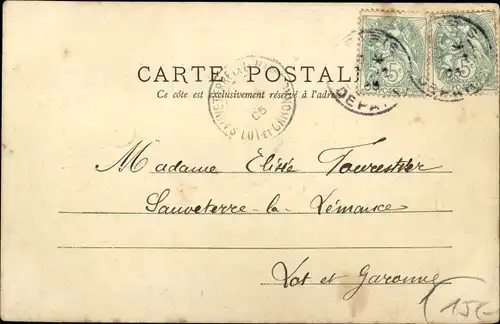 CARTE POSTALE
Ce côté est exclusivement réservé à l'adresse
SAUVETERRE-LA-LEMANCE
LOT-ET-GARONNE
05
DEPART
5
5
Madame Elisée
Sauveterre-la-Lémance
Lot et Garonne
15-